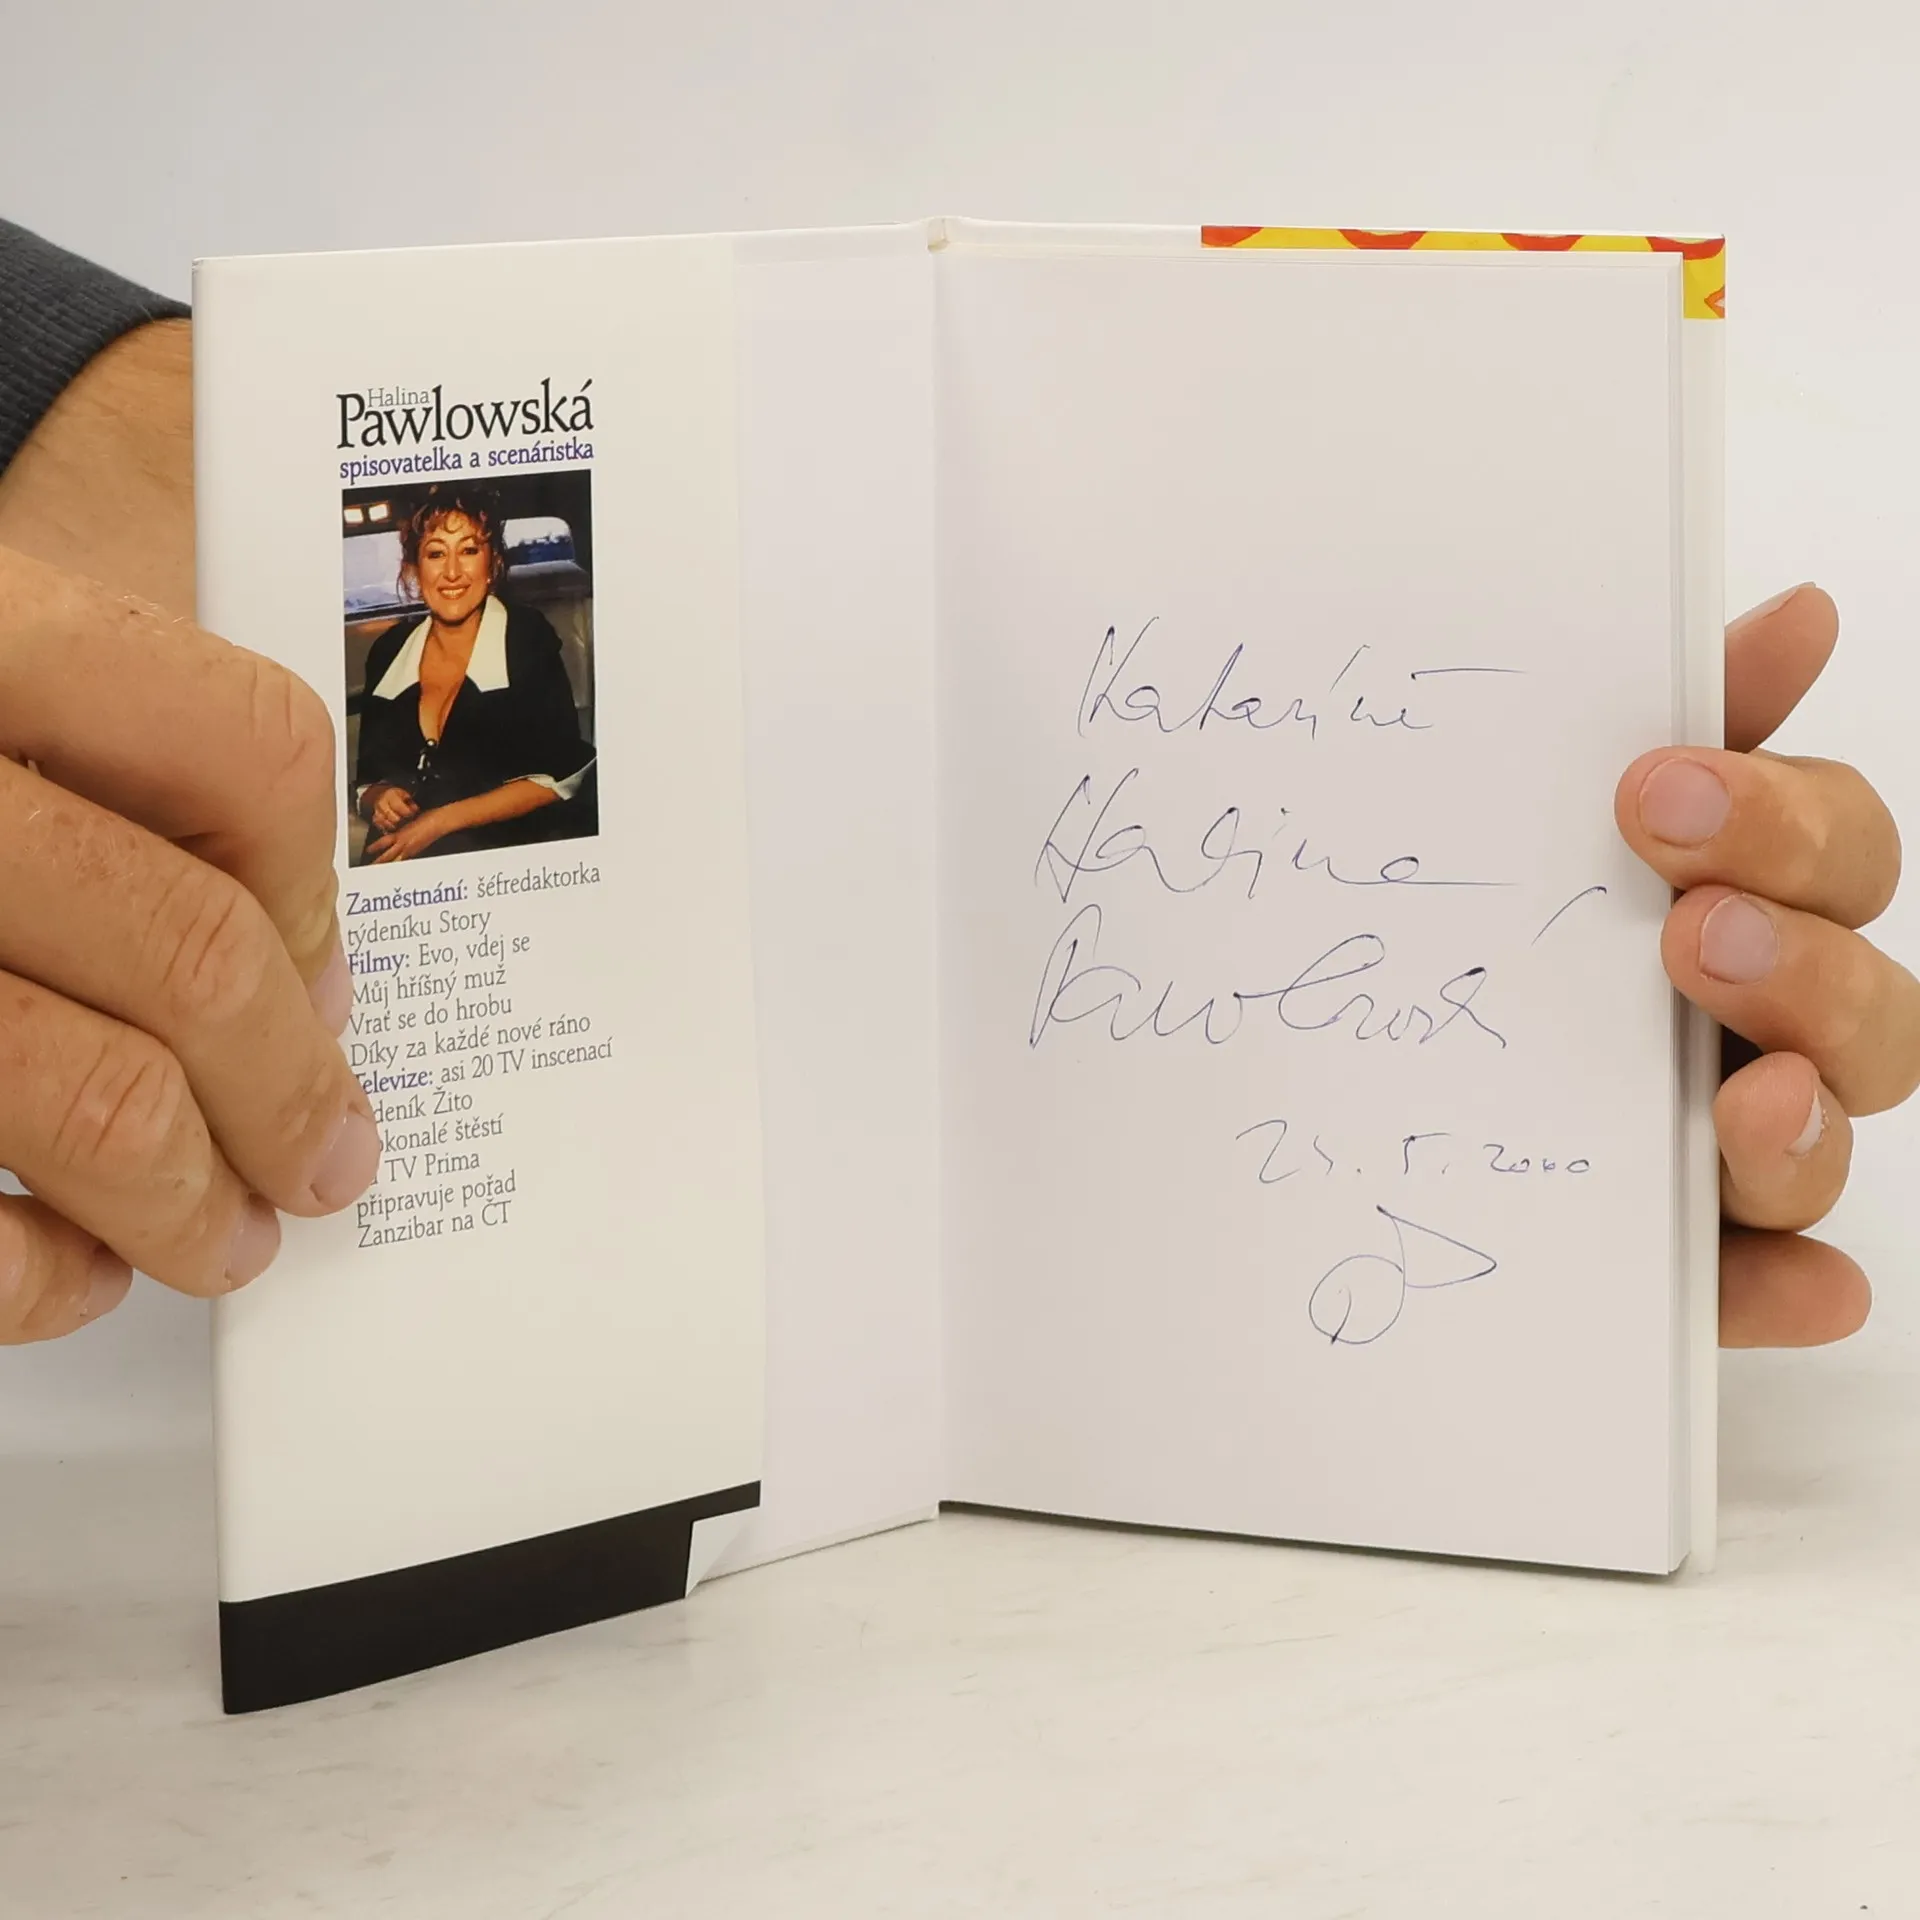 Halina
Pawlowská
spisovatelka a scenáristka
Zaměstnání: šéfredaktorka
týdeníku Story
Filmy: Evo, vdej se
Můj hříšný muž
Vrať se do hrobu
Díky za každé nové ráno
elevize: asi 20 TV inscenací
deník Žito
okonalé štěstí
TV Prima
připravuje pořad
Zanzibar na ČT
Kateříně
Halina
Pawlowská
25. 5. 2000